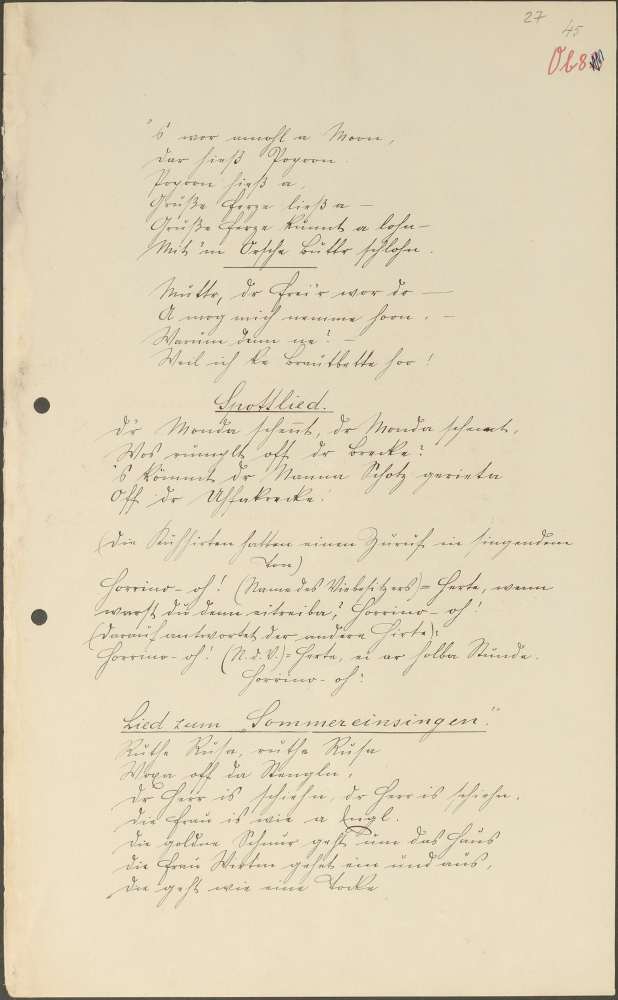 27
45
Ob8
's wor amohl a Moon,
dar hieß Popoon.
Popoon hieß a,
Gruße Ferze ließ a —
Gruße Ferze kunnt a lohn —
Mit 'm Orsche Buttr schlohn.
Muttr, dr Frei'r wor do —
A mog mich nemme hoon. —
Warum denn ne? —
Weil ich ke Brautbette hoo!
Spottlied.
Dr Monda scheint, dr Monda scheint,
Wos rumplt off dr Brecke?
's kömmt dr Nanna Schotz gerieta
Off dr
(Die Kühhirten hatten einen Zuruf in singendem
Ton)
Horrino-oh! (Name des Viebesitzers) = Herte, wenn
warst du denn eitreiba? Horrino-oh!
(Darauf antwortet der andere Hirte):
Horrino-oh! (N. d. V.) = Herte, ei ar halba Stunde.
Horrino-oh!
Lied zum "Sommereinsingen".
Ruthe Rusa, ruthe Rusa
Woxa off da Stengln,
Dr Herr is schiehn, dr Herr is schiehn,
Die Frau is wie a Engl.
Die goldne Schnur geht um das Haus
Die Frau Wirtin gehet ein und aus,
Die geht wie eine Tocke